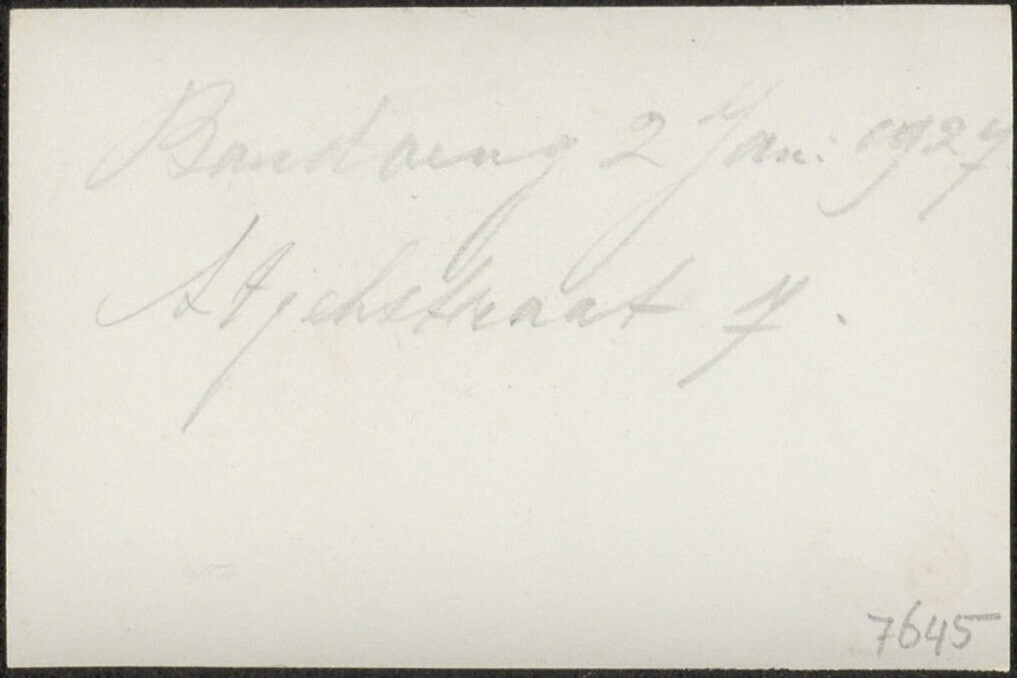 Bandoeng 2 Jan: 1927
Atjehstraat 7.
7645